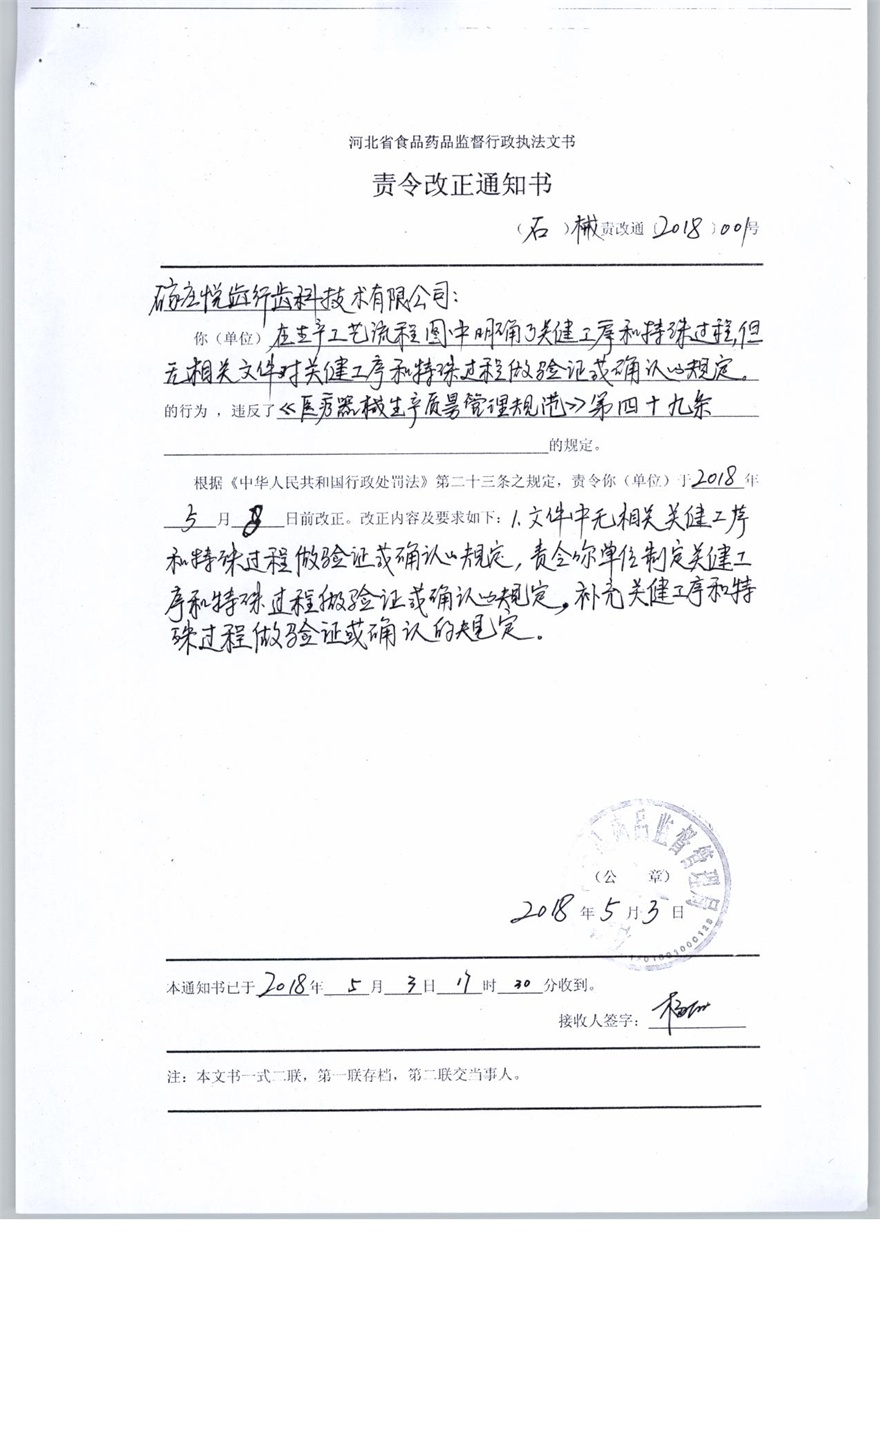 河北省食品药品监督行政执法文书
责令改正通知书
（石）械责改通〔2018〕001号
石家庄悦齿行齿科技术有限公司：
你（单位）在生产工艺流程图中明确了关健工序和特殊过程，但
无相关文件对关健工序和特殊过程做验证或确认的规定。
的行为，违反了《医疗器械生产质量管理规范》第四十九条
的规定。
根据《中华人民共和国行政处罚法》第二十三条之规定，责令你（单位）于2018年
5月8日前改正。改正内容及要求如下：1.文件中无相关关健工序
和特殊过程做验证或确认的规定，责令你单位制定关健工
序和特殊过程做验证或确认的规定。补充关健工序和特
殊过程做验证或确认的规定。
药品监督管理局
（公 章）
2018年5月3日
本通知书已于2018年5月3日17时30分收到。
接收人签字：
注：本文书一式二联，第一联存档，第二联交当事人。